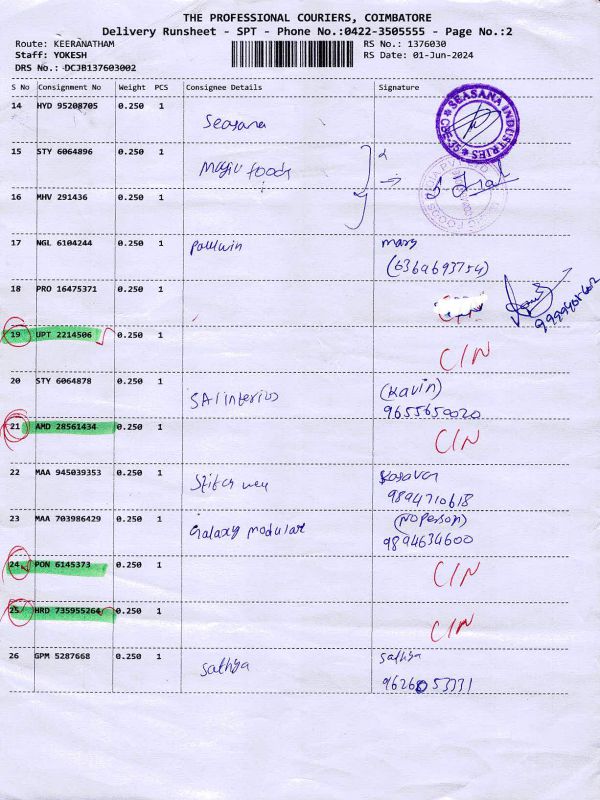 THE PROFESSIONAL COURIERS, COIMBATORE
Delivery Runsheet - SPT - Phone No.:0422-3505555 - Page No.:2
Route: KEERANATHAM RS No.: 1376030
Staff: YOKESH RS Date: 01-Jun-2024
DRS No.: DCJB137603002
S No Consignment No Weight PCS Consignee Details Signature
14 HYD 95208705 0.250 1 Seasana
SEASANA INDUSTRIES
15 STY 6064896 0.250 1 Magic foods
16 MHV 291436 0.250 1
FOODS
17 NGL 6104244 0.250 1 Paulwin Mary
(6369693754)
18 PRO 16475371 0.250 1
19 UPT 2214506 0.250 1 C/N
20 STY 6064878 0.250 1 SAI interios (Kavin)
9655650020
21 AMD 28561434 0.250 1 C/N
22 MAA 945039353 0.250 1
9894710618
23 MAA 703986429 0.250 1 Galaxy modular (No person)
9894634600
24 PON 6145373 0.250 1 C/N
25 HRD 735955264 0.250 1 C/N
26 GPM 5287668 0.250 1 Sathya Sathya
9626053331